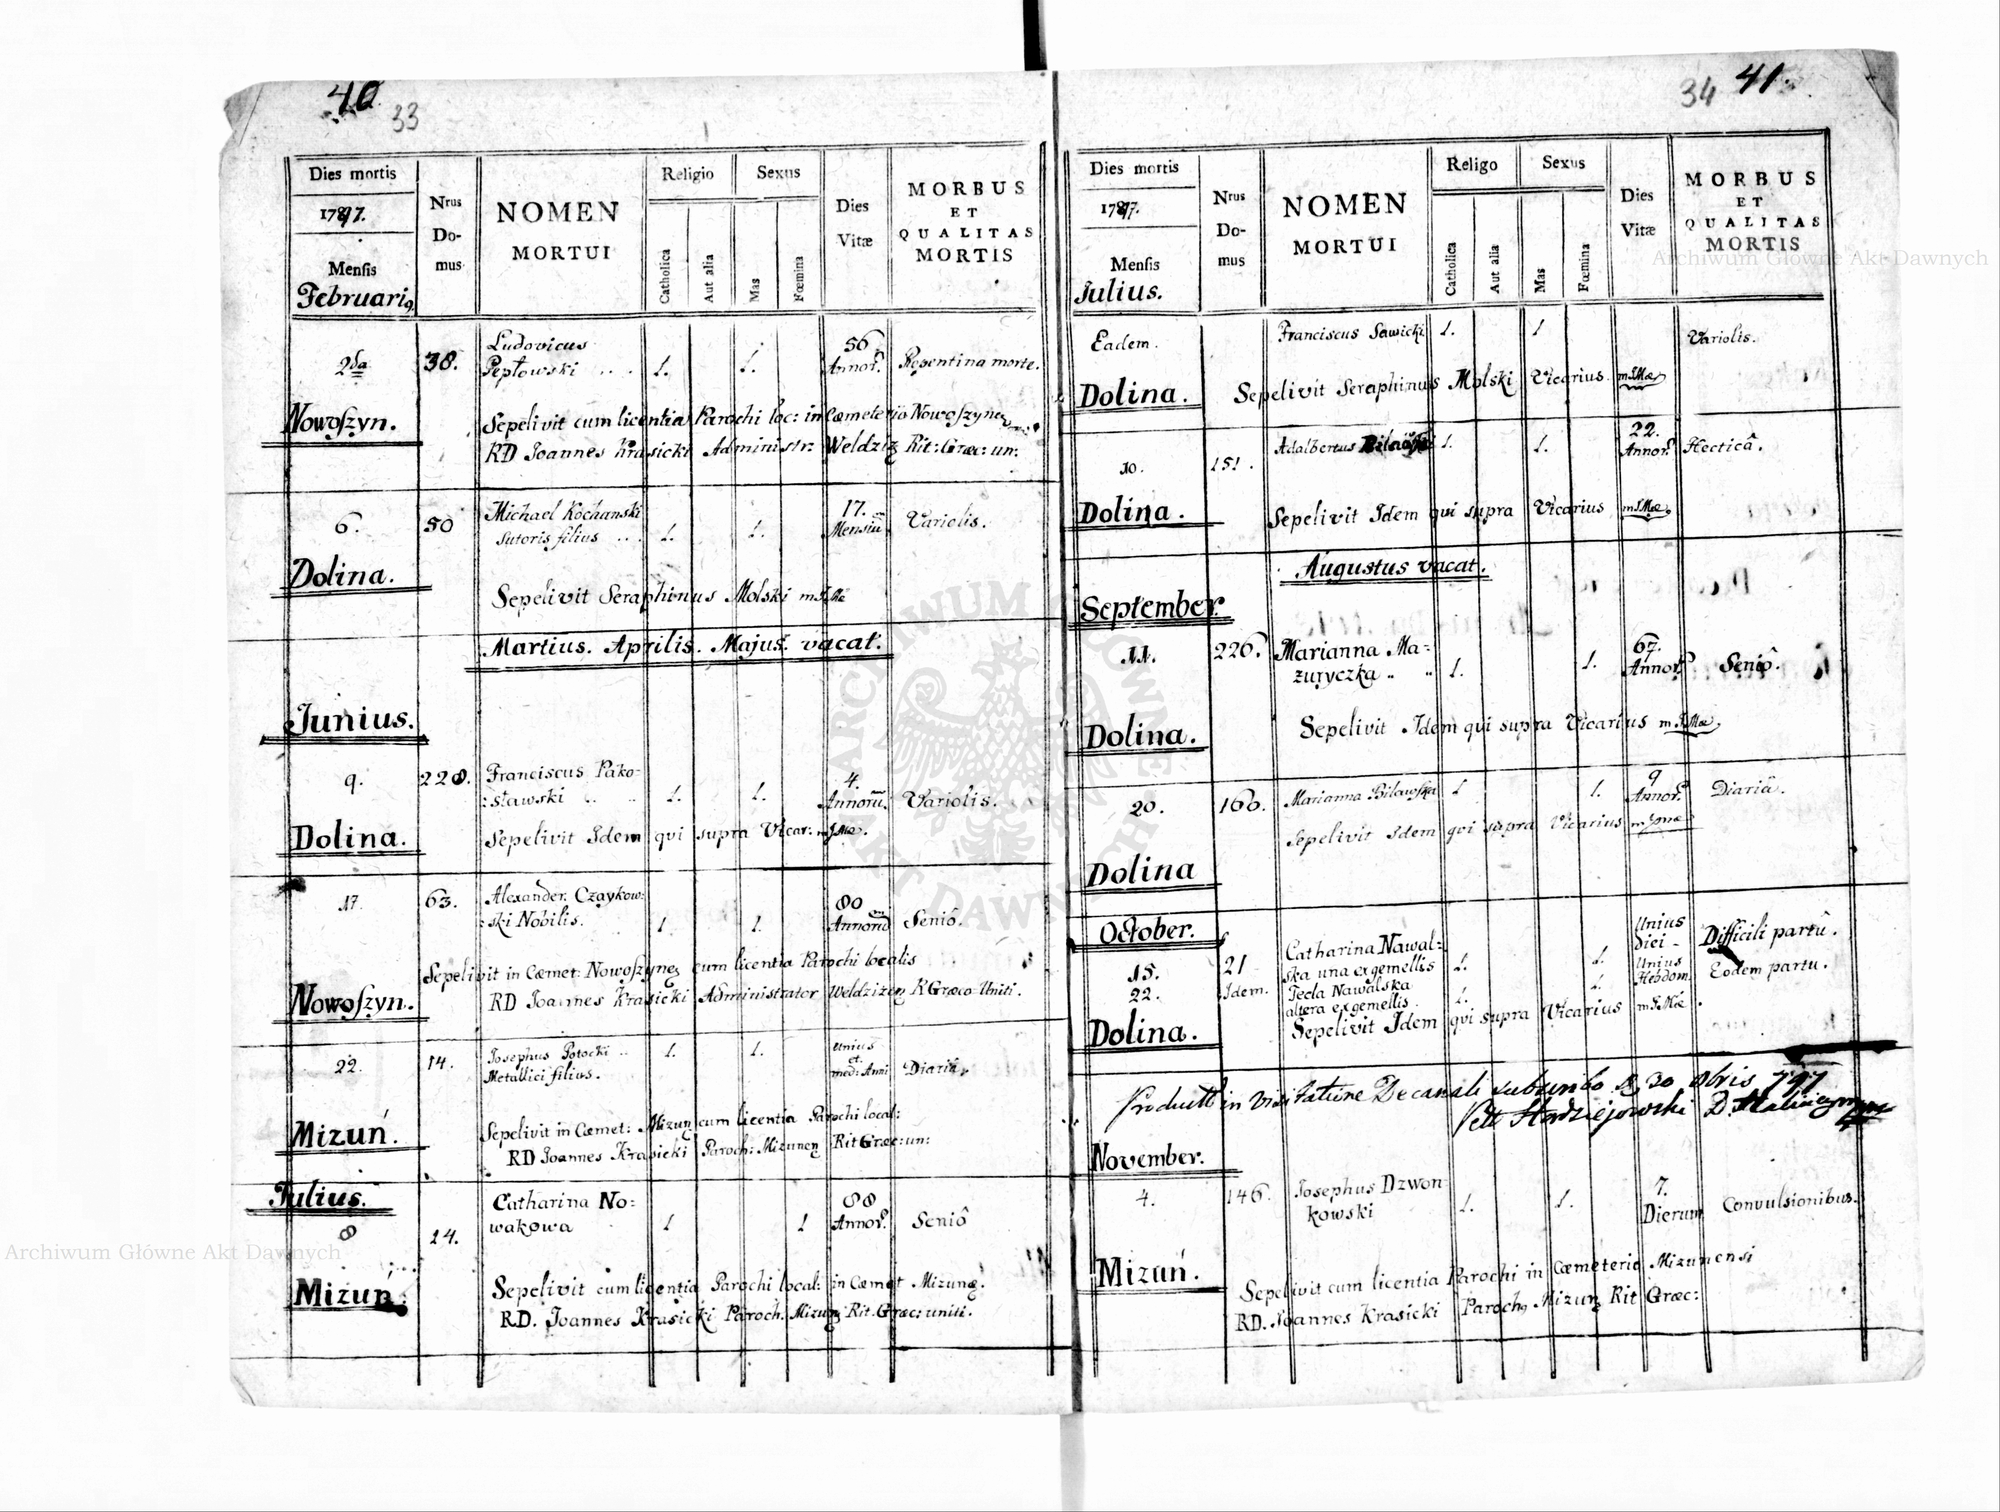 40.
33
Dies mortis
1797.
Mensis
Februariq
Nrus
Do-
mus
NOMEN
MORTUI
Religio
Catholica
Aut alia
Sexus
Mas
Fœmina
Dies
Vitæ
MORBUS
ET
QUALITAS
MORTIS
2da
38.
Ludovicus
Pepłowski . . .
1.
1.
56
Annor.
Repentina morte.
Nowoszyn.
Sepelivit cum licentia Parochi loc: in Cœmeterio
RD Joannes Krasicki Administr: Rit: Græc: un:
6.
50
Michael Kochanski
Sutoris filius . . .
1.
1.
17.
Mensiu
Variolis.
Dolina.
Sepelivit Seraphinus Molski
Martius. Aprilis. Majus. vacat.
Junius.
9.
228.
Franciscus Pako=
:sławski
1.
1.
4.
Annorū.
Variolis.
Dolina.
Sepelivit Idem qui supra Vicar:
17.
63.
Alexander Czaykow:
:ski Nobilis.
1
1.
80
Annorū
Seniô.
Nowoszyn.
Sepelivit in Cœmet: cum licentia Parochi localis
RD Joannes Krasicki Administrator R Græco-Uniti.
22.
14.
Josephus Potocki ..
Metallici filius.
1.
1.
unius
et
med: Anni
Diariâ.
Mizuń.
Sepelivit in Cœmet: cum licentia Parochi local:
RD Joannes Krasicki Paroch: Rit Græc: un:
Julius.
8
24.
Catharina No=
wakowa
1
1
88
Annor.
Seniô
Mizuń.
Sepelivit cum licentia Parochi local: in Cœmet
RD. Joannes Krasicki Paroch. Rit. Græc: uniti.
34
41.
Dies mortis
1797.
Mensis
Julius.
Nrus
Do-
mus
NOMEN
MORTUI
Religo
Catholica
Aut alia
Sexus
Mas
Fœmina
Dies
Vitæ
MORBUS
ET
QUALITAS
MORTIS
Eadem.
Franciscus Sawicki
1.
1
Variolis.
Dolina.
Sepelivit Seraphinus Molski Vicarius
10.
151.
Adalbertus
1.
1.
22.
Annor.
Hecticâ.
Dolina.
Sepelivit Idem qui supra Vicarius
Augustus vacat.
September.
11.
226.
Marianna Ma=
zuryczka
1.
1.
67.
Annor.
Seniô.
Dolina.
Sepelivit Idem qui supra Vicarius
20.
160.
Marianna Bilawska
1
1.
9
Annor.
Diariâ.
Sepelivit Idem qui supra Vicarius
Dolina
October.
15.
21
Catharina Nawal=
ska una ex gemellis
1.
1.
Unius
Diei -
Difficili partû.
22.
Idem.
Tecla Nawalska
altera ex gemellis.
1.
1.
Unius
Hebdom.
Eodem partu.
Dolina.
Sepelivit Idem qui supra Vicarius
in Visitatione Decanali 30 797
November.
4.
146.
Josephus Dzwon
kowski
1.
1.
7.
Dierum
Convulsionibus.
Mizuń.
Sepelivit cum licentia Parochi in Cœmeterio Mizunensi
RD. Joannes Krasicki Rit Græc:
Archiwum Główne Akt Dawnych
Archiwum Główne Akt Dawnych
ARCHIWUM GŁÓWNE AKT DAWNYCH